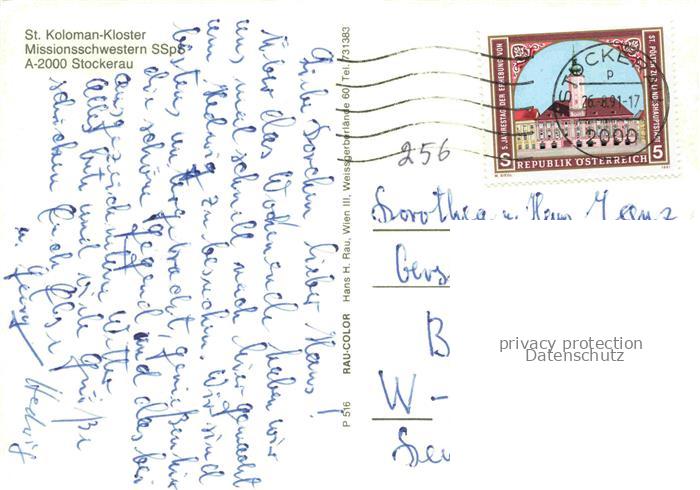 St. Koloman-Kloster
Missionsschwestern SSpS
A-2000 Stockerau
Liebe Dorchen, lieber Hans!
Über das Wochenende haben wir
uns mal schnell nach hier gemacht
um Hedwig zu besuchen. Wir sind
bestens untergebracht, genießen hier
die schöne Gegend, und das bei
ausgezeichnetem Wetter.
Alles Gute und viele Grüße
schicken Euch
u. Georg Hedwig
P 516 RAU-COLOR Hans H. Rau, Wien III, Weissgerberlände 60, Tel. 731383
5. JAHRESTAG DER ERHEBUNG VON
ST. PÖLTEN ZUR LANDSHAUPTSTADT
S REPUBLIK ÖSTERREICH 5
1991
P
26.-8.91-17
2000
256
Dorothea u. Hans
B
W -
privacy protection
Datenschutz